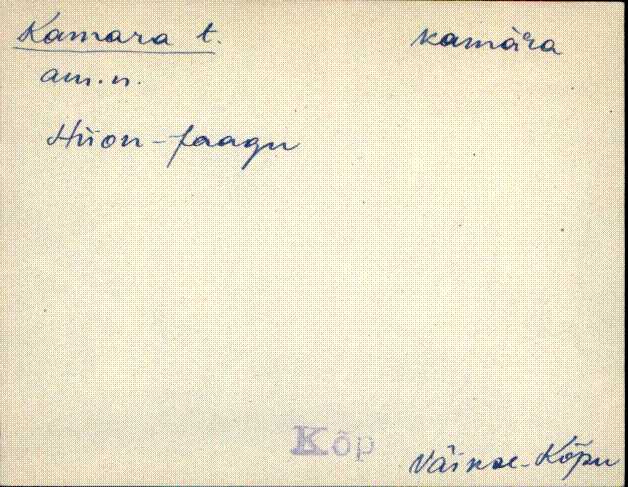 Kamara t. kamàra
am.n.
Hiion-Jaagu
Kõp
Väike-Kõpu